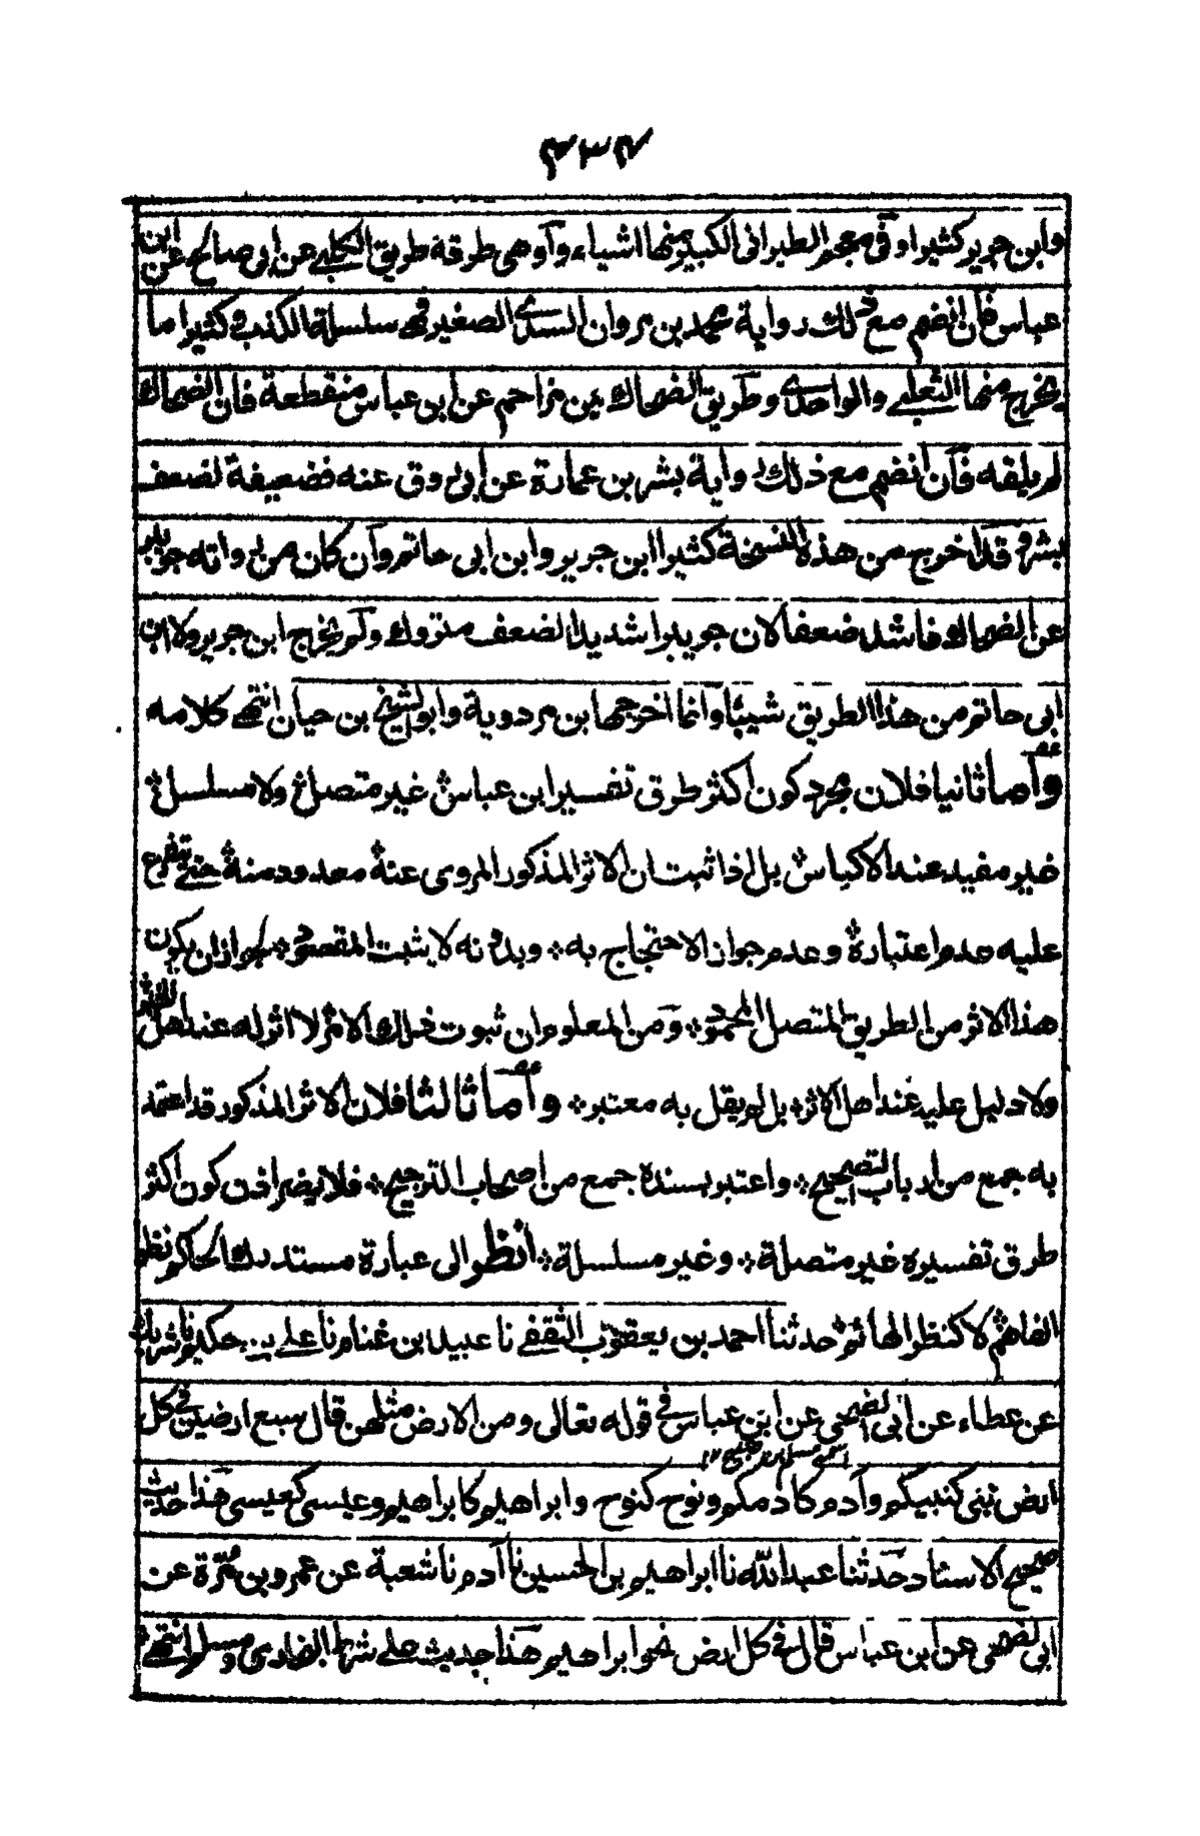 ٤٣٤
وابن جرير كثيرا وفى معجم الطبرانى الكبير منها اشياء وآوهى طرقه طريق الكلبى عن ابى صالح عن ابن
عباس فآن انضم مع ذلك رواية محمد بن مروان السدى الصغير فهى سلسلة الكذب وكثيرا ما
يخرج منها الثعلبى والواحدى وطريق الضحاك بن مزاحم عن ابن عباس منقطعة فان الضحاك
لم يلقه فآن انضم مع ذلك رواية بشر بن عمارة عن ابى روق عنه فضعيفة لضعف
بشر وقد اخرج من هذه النسخة كثيرا ابن جرير وابن ابى حاتم وآن كان من رواته جويبر
عن الضحاك فاشد ضعفا لان جويبرا شديد الضعف متروك ولم يخرج ابن جرير ولا ابن
ابى حاتم من هذا الطريق شيئا وانما اخرجها ابن مردوية وابو الشيخ بن حيان انتهى كلامه
وآما ثانيا فلان مجرد كون اكثر طرق تفسير ابن عباس غير متصل ولا مسلسل
غير مفيد عند الاكياس بل اذا ثبت ان الاثر المذكور المروى عنه معدود منه حتى تتفرع
عليه عدم اعتباره وعدم جواز الاحتجاج به وبدونه لا يثبت المقصود لجواز ان يكون
هذا الاثر من الطريق المتصل المحمود ومن المعلوم ان ثبوت ذلك الامر لا اثر له عند اهل
ولا دليل عليه عند اهل الاثر بل لم يقل به معتبر وآما ثالثا فلان الاثر المذكور قد اعتمد
به جمع من ارباب التصحيح واعتبر بسنده جمع من اصحاب الترجيح فلا يضر اذن كون اكثر
طرق تفسيره غير متصلة وغير مسلسلة انظر الى عبارة مستدرك الحاكم نظر
الفاهم لا كنظر الهائم حدثنا احمد بن يعقوب الثقفى نا عبيد بن غنام نا على بن حكيم نا شريك
عن عطاء عن ابى الضحى عن ابن عباس فى قوله تعالى ومن الارض مثلهن قال سبع ارضين فى كل
اسمه مسلم بن صبيح ١٢
ارض نبى كنبيكم وآدم كادمكم ونوح كنوح وابراهيم كابراهيم وعيسى كعيسى هذا حديث
صحيح الاسناد حدثنا عبد الله نا ابراهيم بن الحسين نا آدم نا شعبة عن عمرو بن مرة عن
ابى الضحى عن ابن عباس قال فى كل ارض نحو ابراهيم هذا حديث على شرط البخارى ومسلم انتهى